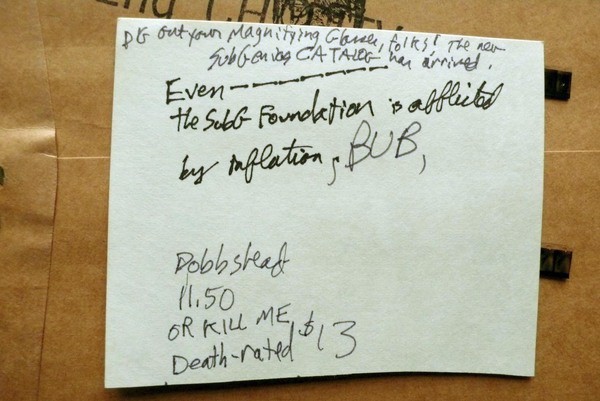 DIG out your Magnifying Glasses, folks! The new
SubGenius CATALOG has arrived.
Even
the SubG Foundation is afflicted
by inflation, BUB,
Dobbshead
11.50
OR KILL ME
Death-rated $13